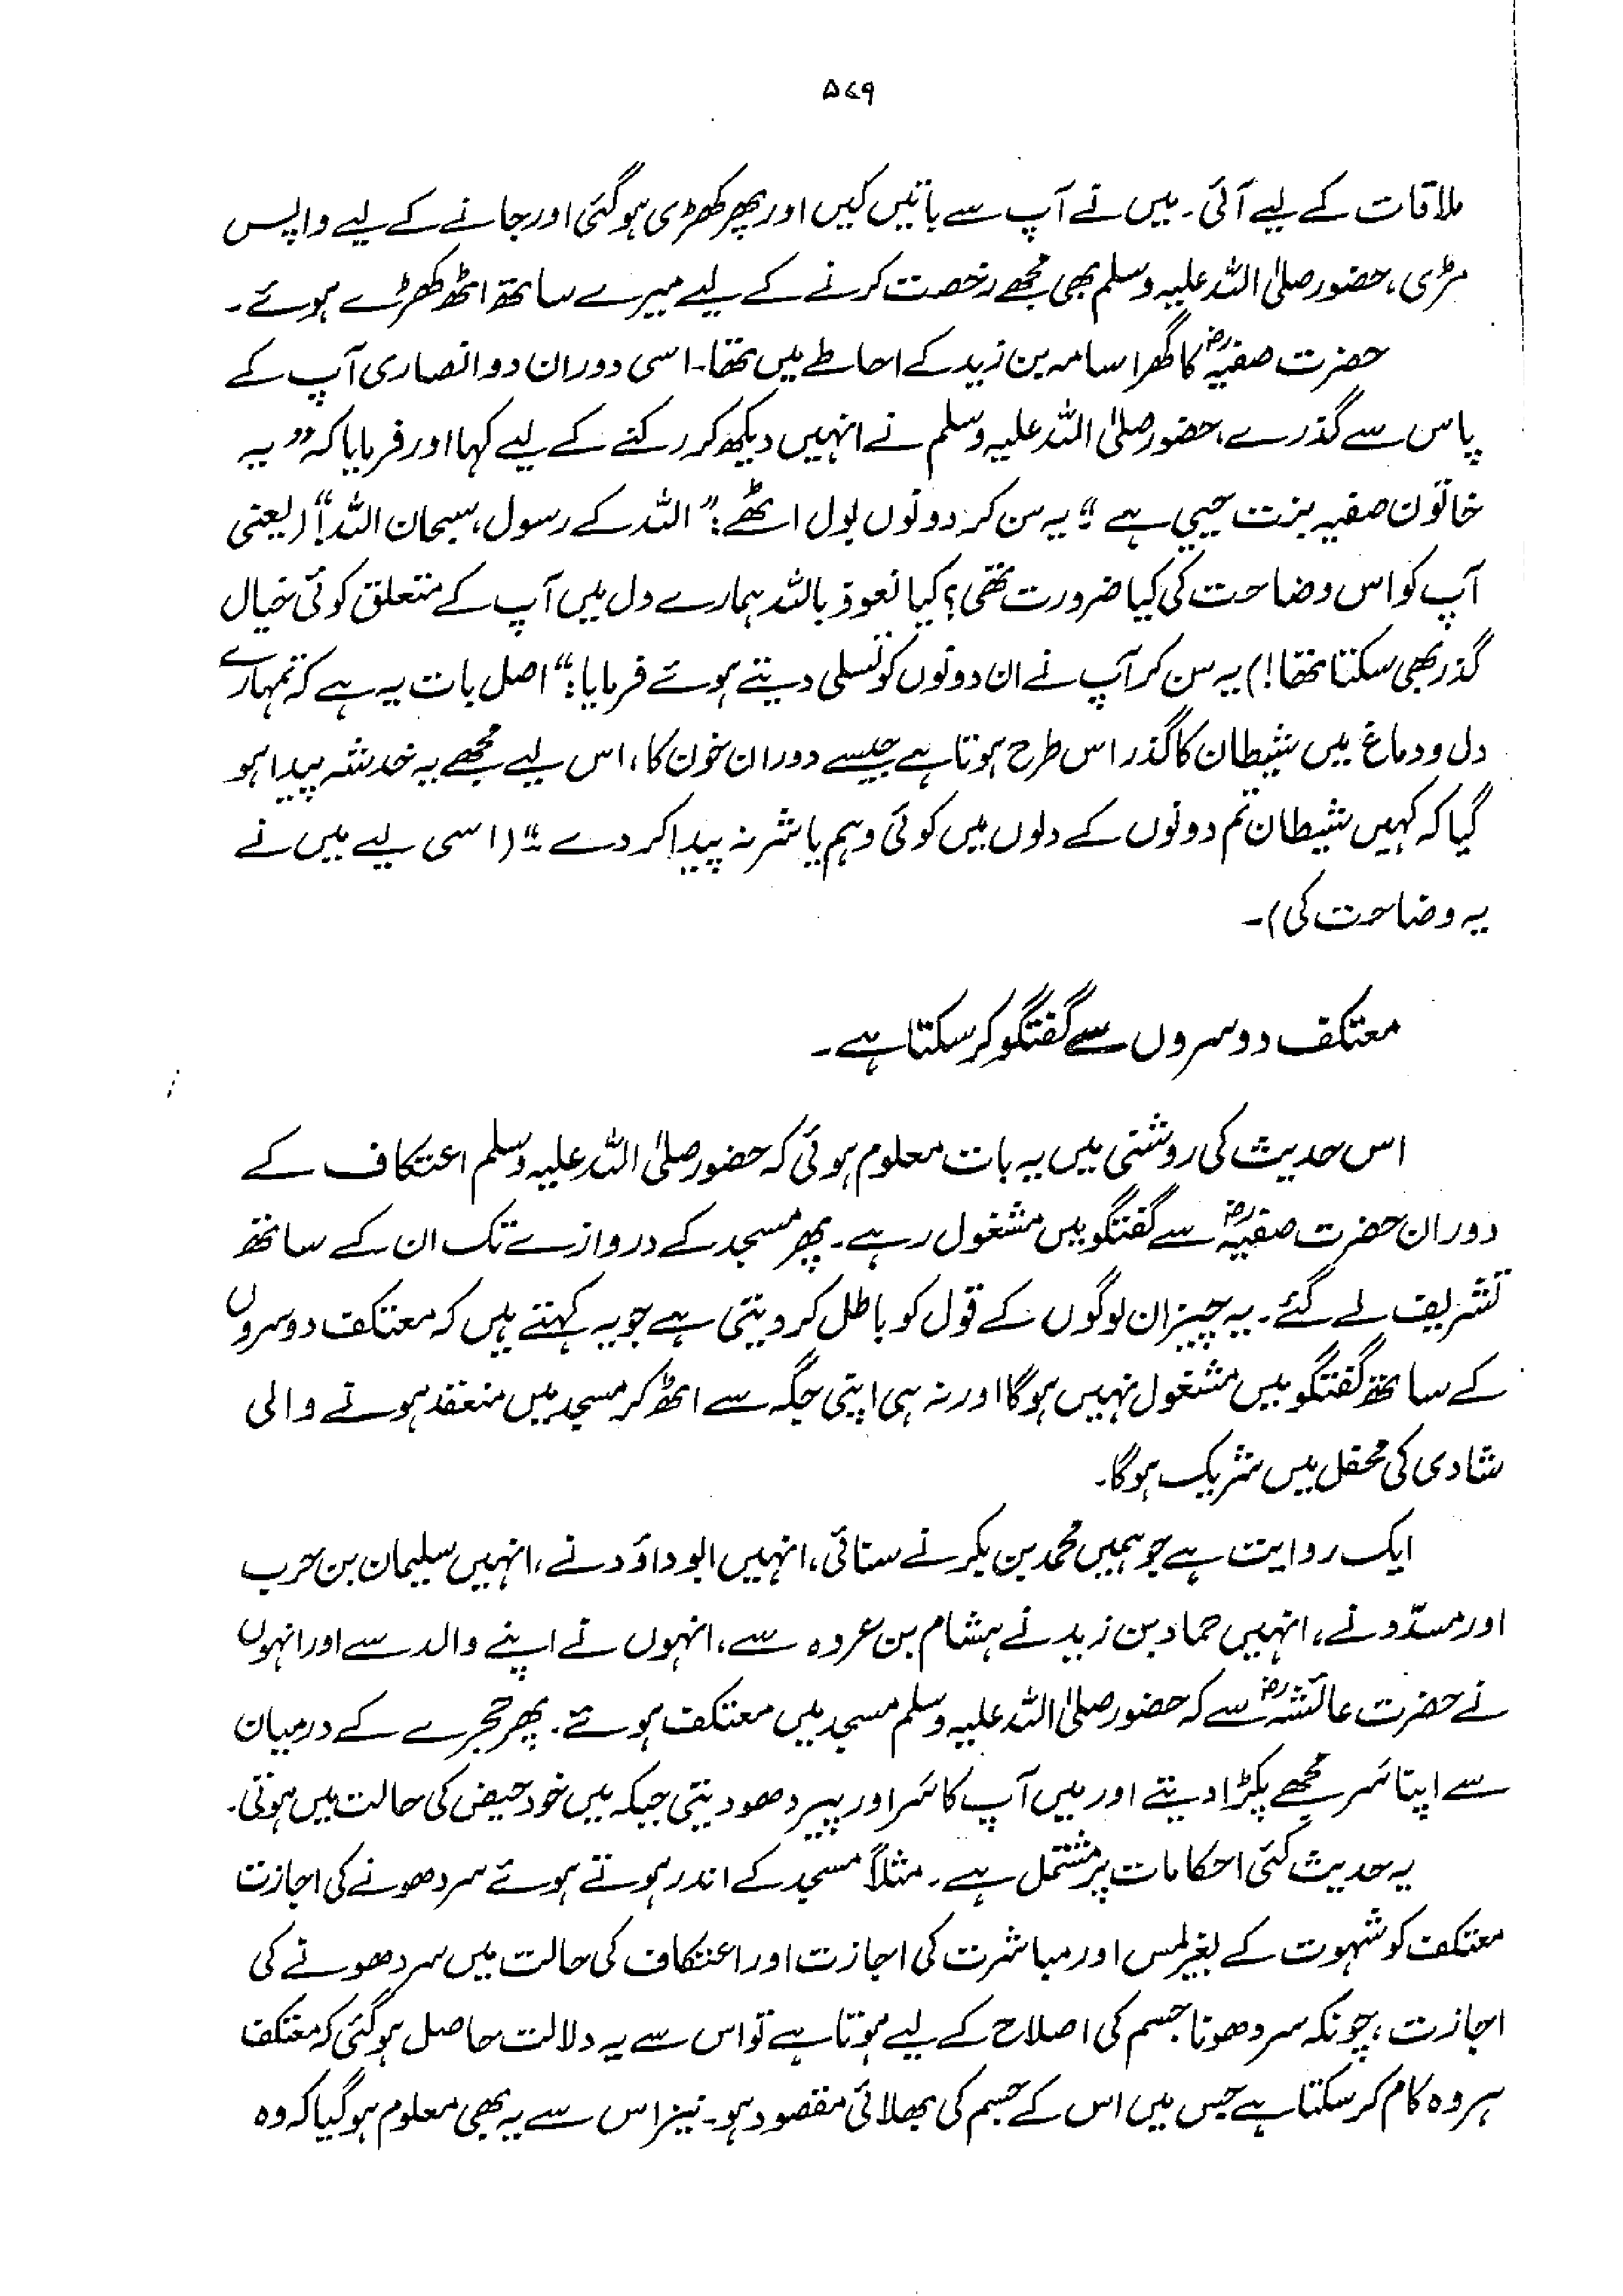 ۵۷۹
ملاقات کے لیے آئی۔ میں نے آپ سے باتیں کیں اور پھر کھڑی ہو گئی اور جانے کے لیے واپس
مڑی، حضور صلی اللہ علیہ وسلم بھی مجھے رخصت کرنے کے لیے میرے ساتھ اٹھ کھڑے ہوئے۔
حضرت صفیہؓ کا گھر اسامہ بن زید کے احاطے میں تھا۔ اسی دوران دو انصاری آپ کے
پاس سے گذرے، حضور صلی اللہ علیہ وسلم نے انہیں دیکھ کر رکنے کے لیے کہا اور فرمایا کہ "یہ
خاتون صفیہ بنت حیی ہے" یہ سن کر دونوں بول اٹھے: "اللہ کے رسول، سبحان اللہ!" (یعنی
آپ کو اس وضاحت کی کیا ضرورت تھی؟ کیا نعوذ باللہ ہمارے دل میں آپ کے متعلق کوئی خیال
گذر بھی سکتا تھا!) یہ سن کر آپ نے ان دونوں کو تسلی دیتے ہوئے فرمایا: "اصل بات یہ ہے کہ تمہارے
دل و دماغ میں شیطان کا گذر اس طرح ہوتا ہے جیسے دوران خون کا، اس لیے مجھے یہ خدشہ پیدا ہو
گیا کہ کہیں شیطان تم دونوں کے دلوں میں کوئی وہم یا شر نہ پیدا کر دے" (اسی لیے میں نے
یہ وضاحت کی)۔
معتکف دوسروں سے گفتگو کر سکتا ہے۔
اس حدیث کی روشنی میں یہ بات معلوم ہوئی کہ حضور صلی اللہ علیہ وسلم اعتکاف کے
دوران حضرت صفیہؓ سے گفتگو میں مشغول رہے۔ پھر مسجد کے دروازے تک ان کے ساتھ
تشریف لے گئے۔ یہ چیز ان لوگوں کے قول کو باطل کر دیتی ہے جو یہ کہتے ہیں کہ معتکف دوسروں
کے ساتھ گفتگو میں مشغول نہیں ہوگا اور نہ ہی اپنی جگہ سے اٹھ کر مسجد میں منعقد ہونے والی
شادی کی محفل میں شریک ہوگا۔
ایک روایت ہے جو ہمیں محمد بن بکر نے سنائی، انہیں ابو داؤد نے، انہیں سلیمان بن حرب
اور مسدّد نے، انہیں حماد بن زید نے ہشام بن عروہ سے، انہوں نے اپنے والد سے اور انہوں
نے حضرت عائشہؓ سے کہ حضور صلی اللہ علیہ وسلم مسجد میں معتکف ہوتے۔ پھر حجرے کے درمیان
سے اپنا سَر مجھے پکڑا دیتے اور میں آپ کا سَر اور پیر دھو دیتی جبکہ میں خود حیض کی حالت میں ہوتی۔
یہ حدیث کئی احکامات پر مشتمل ہے۔ مثلاً مسجد کے اندر ہوتے ہوئے سر دھونے کی اجازت
معتکف کو شہوت کے بغیر لمس اور مباشرت کی اجازت اور اعتکاف کی حالت میں سر دھونے کی
اجازت، چونکہ سر دھونا جسم کی اصلاح کے لیے ہوتا ہے تو اس سے یہ دلالت حاصل ہو گئی کہ معتکف
ہر وہ کام کر سکتا ہے جس میں اس کے جسم کی بھلائی مقصود ہو۔ نیز اس سے یہ بھی معلوم ہو گیا کہ وہ